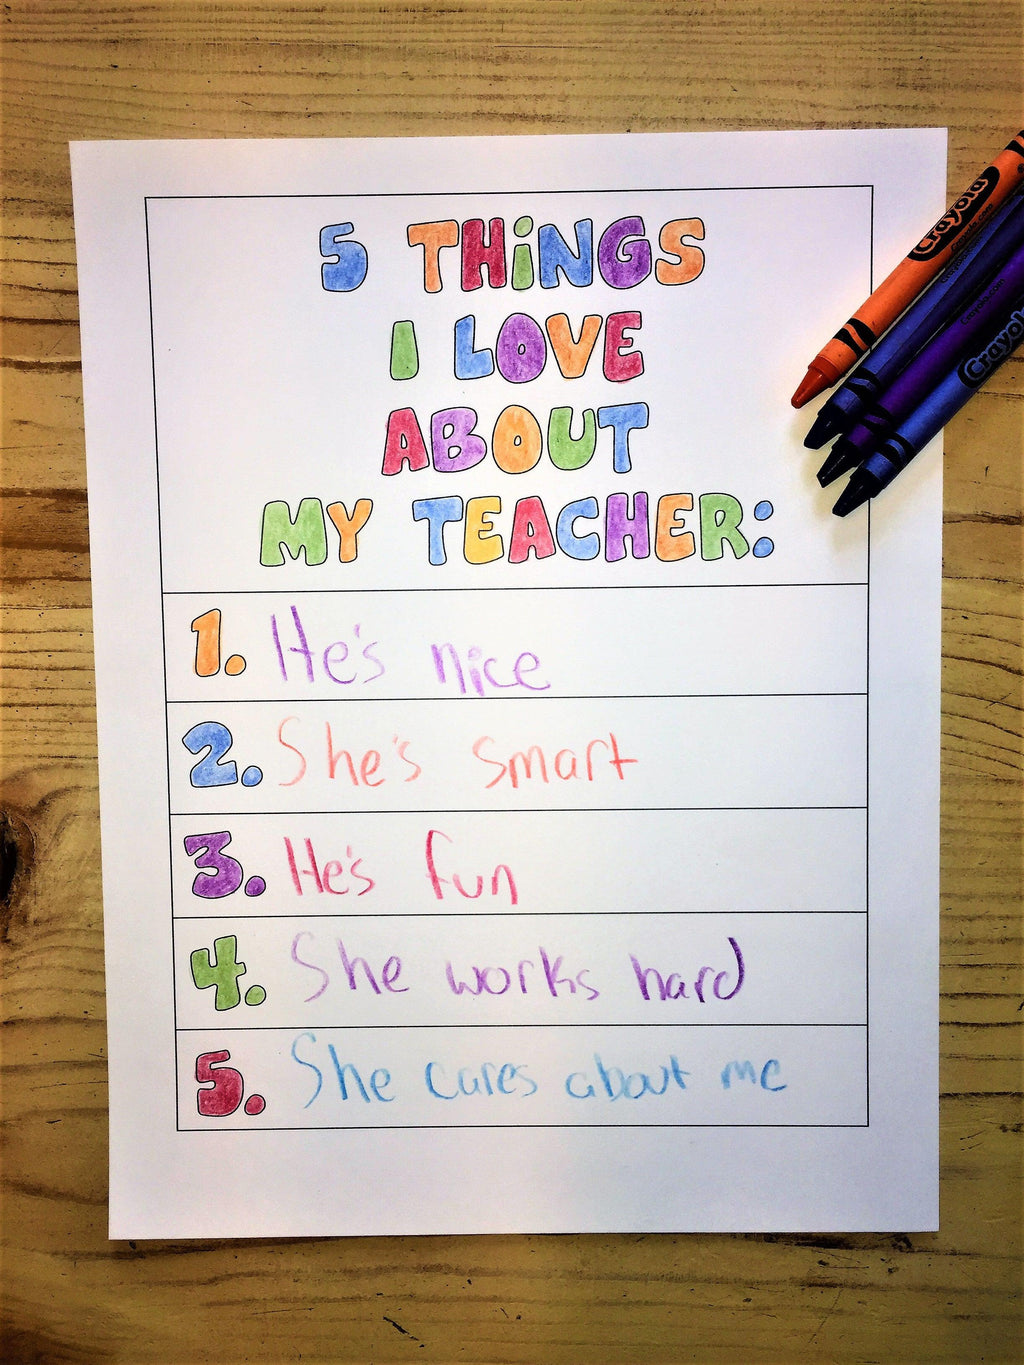 5 THiNGS
I LOVE
ABOUT
MY TEACHER:
1. He's nice
2. She's smart
3. He's fun
4. She works hard
5. She cares about me
Crayola
Crayola.com
Crayola.com
Crayol